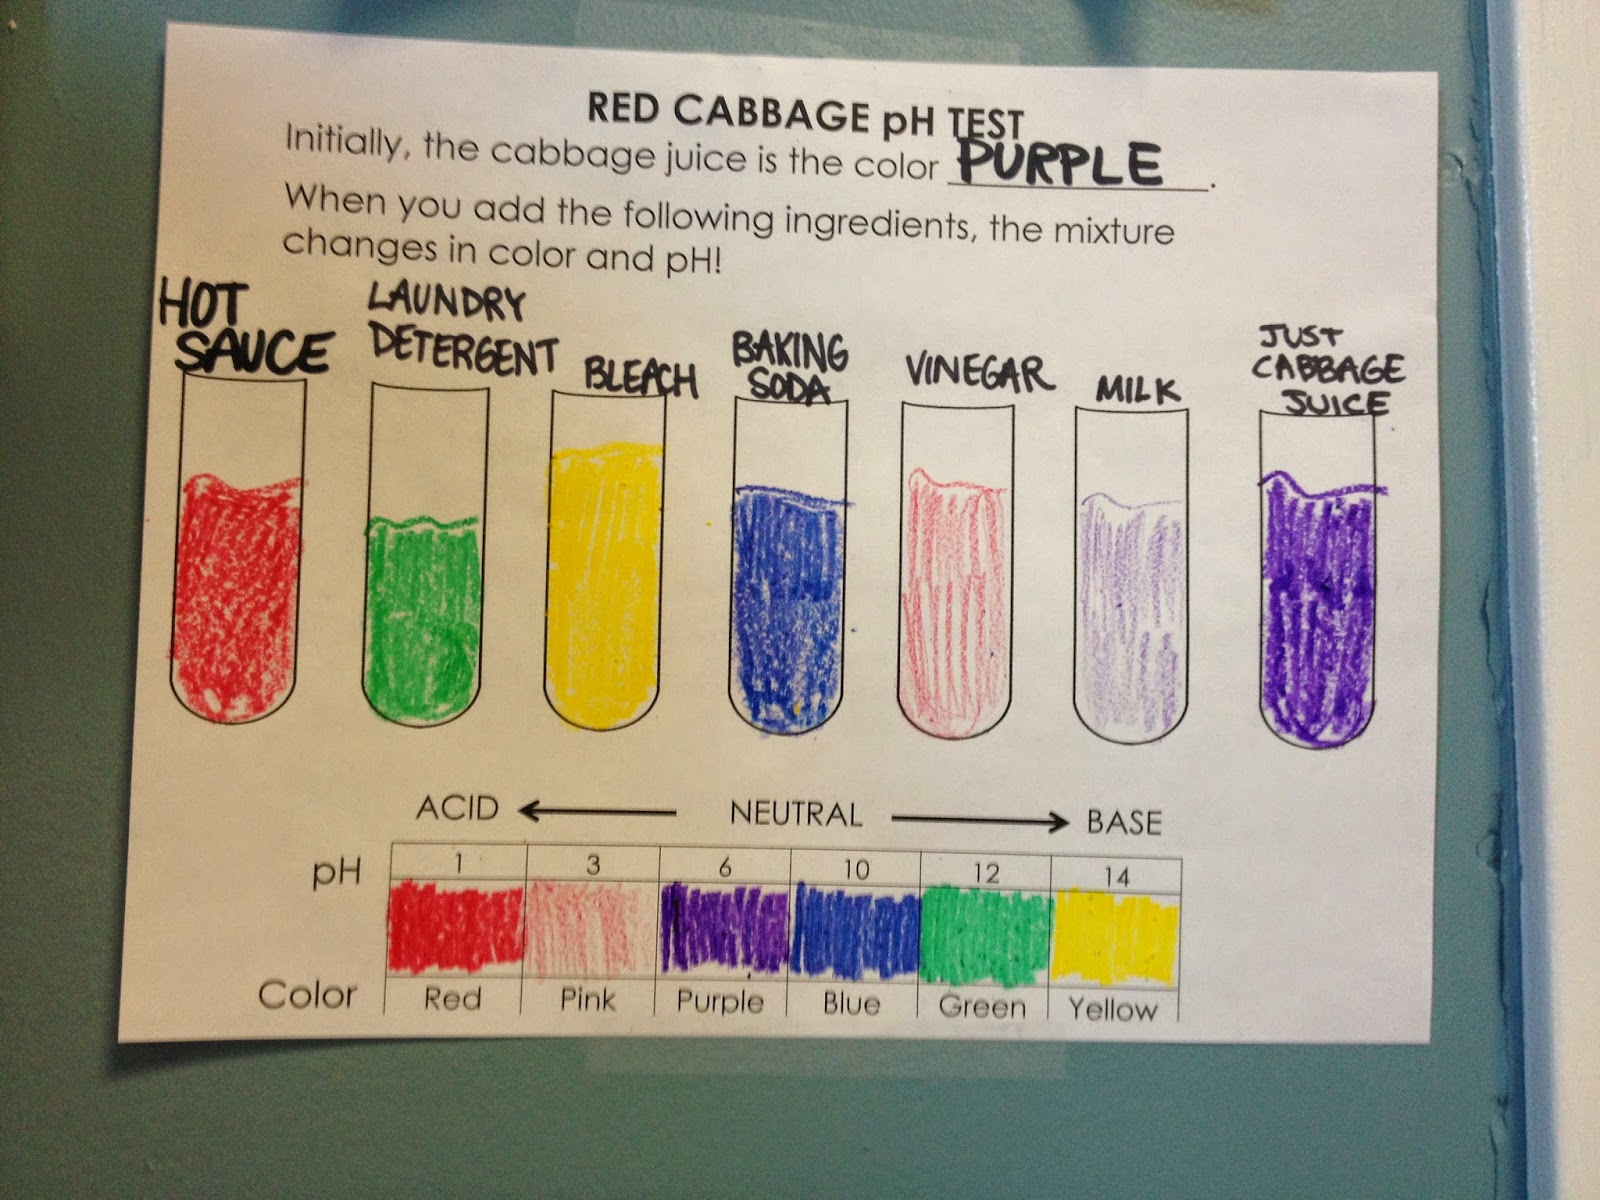 RED CABBAGE pH TEST
Initially, the cabbage juice is the color PURPLE.
When you add the following ingredients, the mixture
changes in color and pH!
HOT
SAUCE
LAUNDRY
DETERGENT
BLEACH
BAKING
SODA
VINEGAR
MILK
JUST
CABBAGE
JUICE
ACID NEUTRAL BASE
pH 1 3 6 10 12 14
Color Red Pink Purple Blue Green Yellow